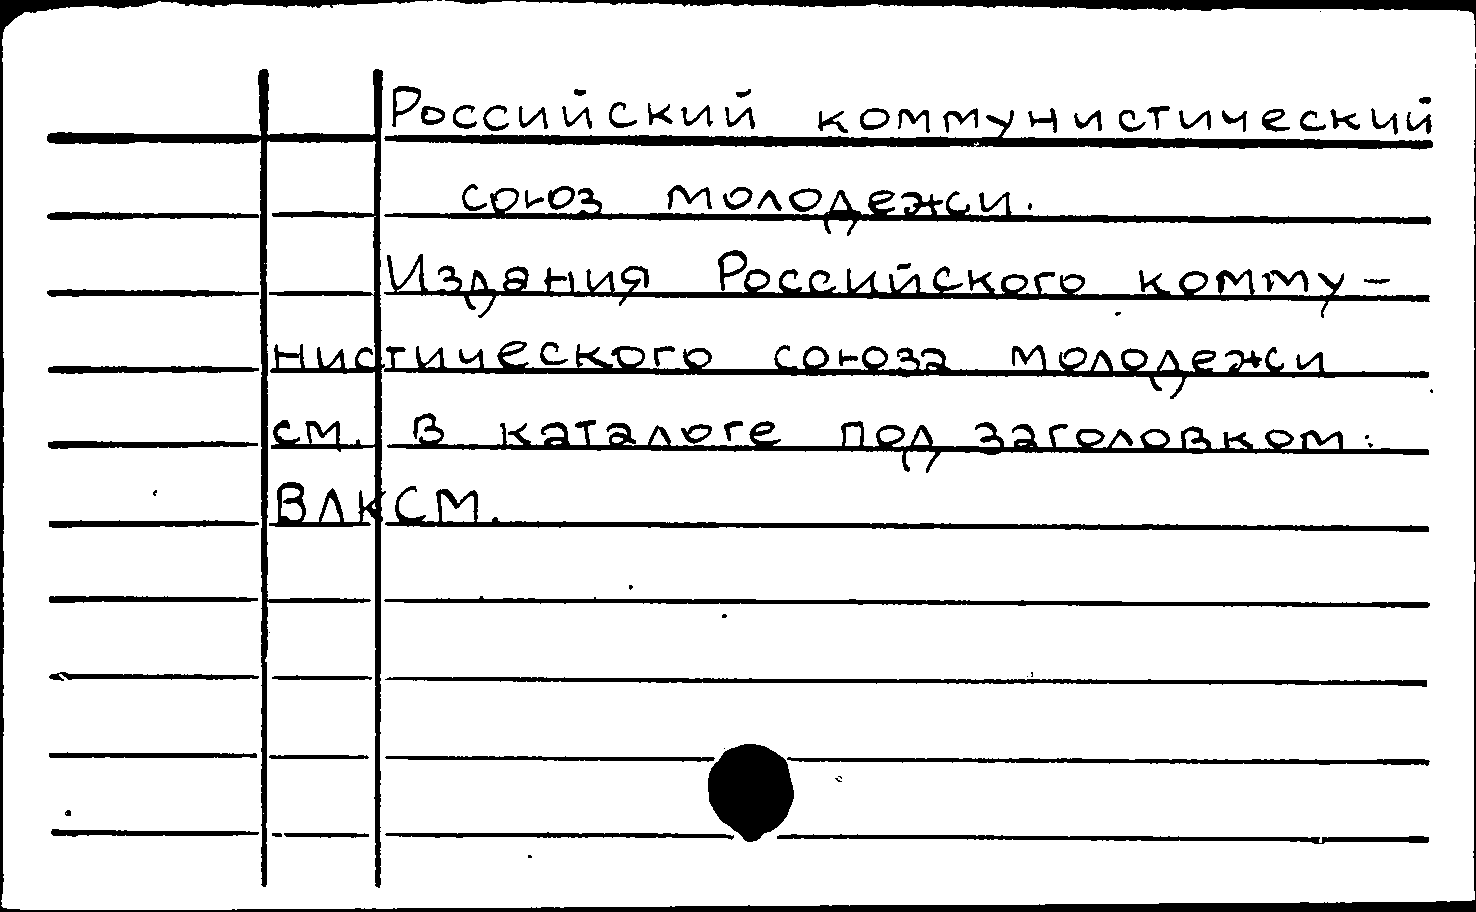 Российский коммунистический
союз молодежи.
Издания Российского комму-
нистического союза молодежи
см. в каталоге под заголовком:
ВЛКСМ.